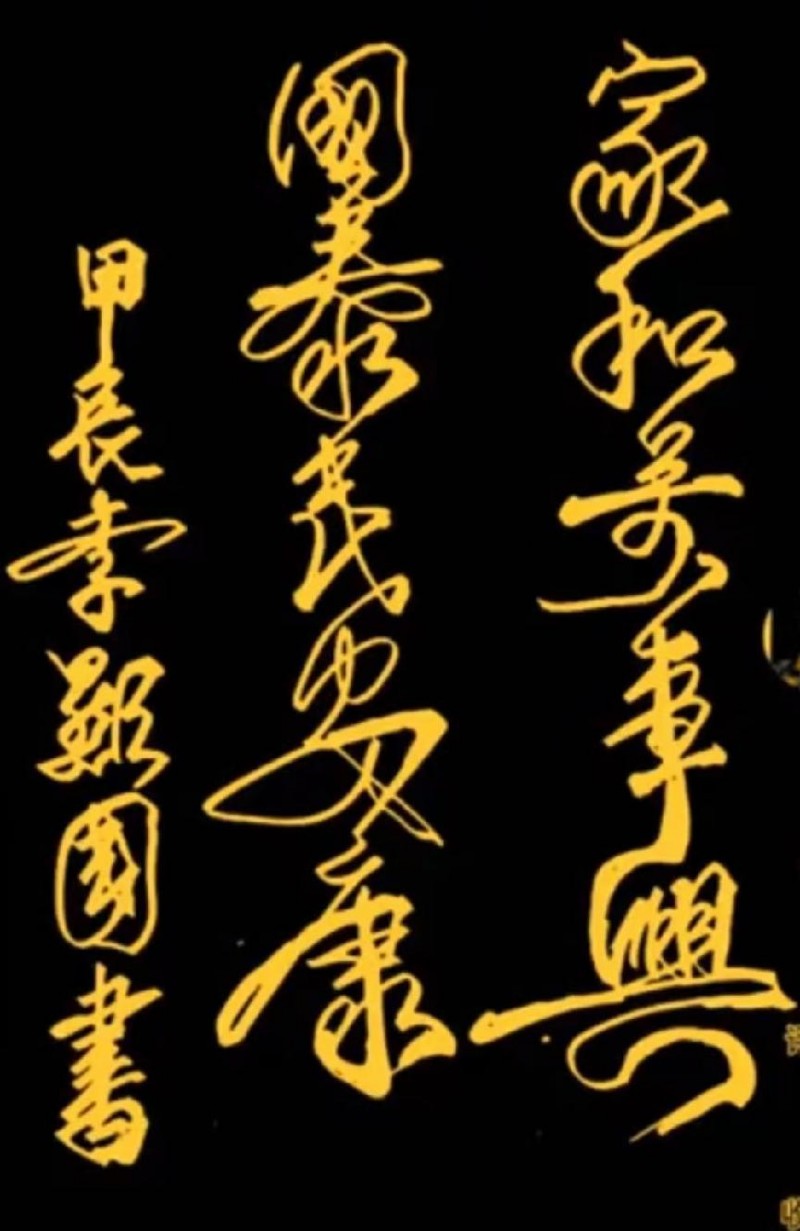 家和萬事興
國泰民安康
甲辰李顯國書